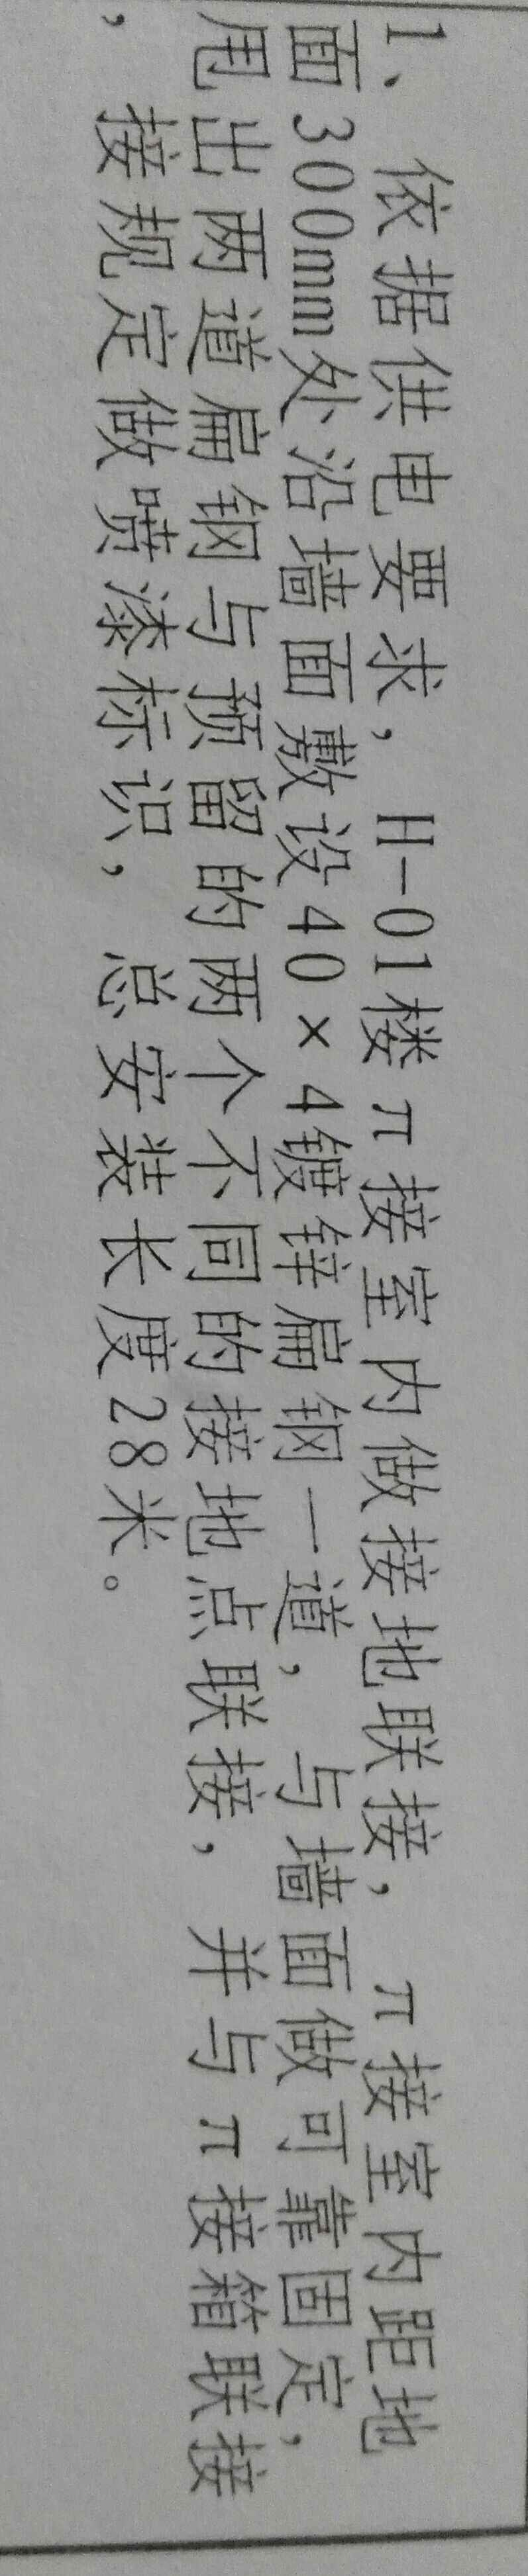 1、依据供电要求，H-01楼π接室内做接地联接，π接室内距地
面300mm处沿墙面敷设40×4镀锌扁钢一道，与墙面做可靠固定，
甩出两道扁钢与预留的两个不同的接地点联接，并与π接箱联接
，接规定做喷漆标识，总安装长度28米。